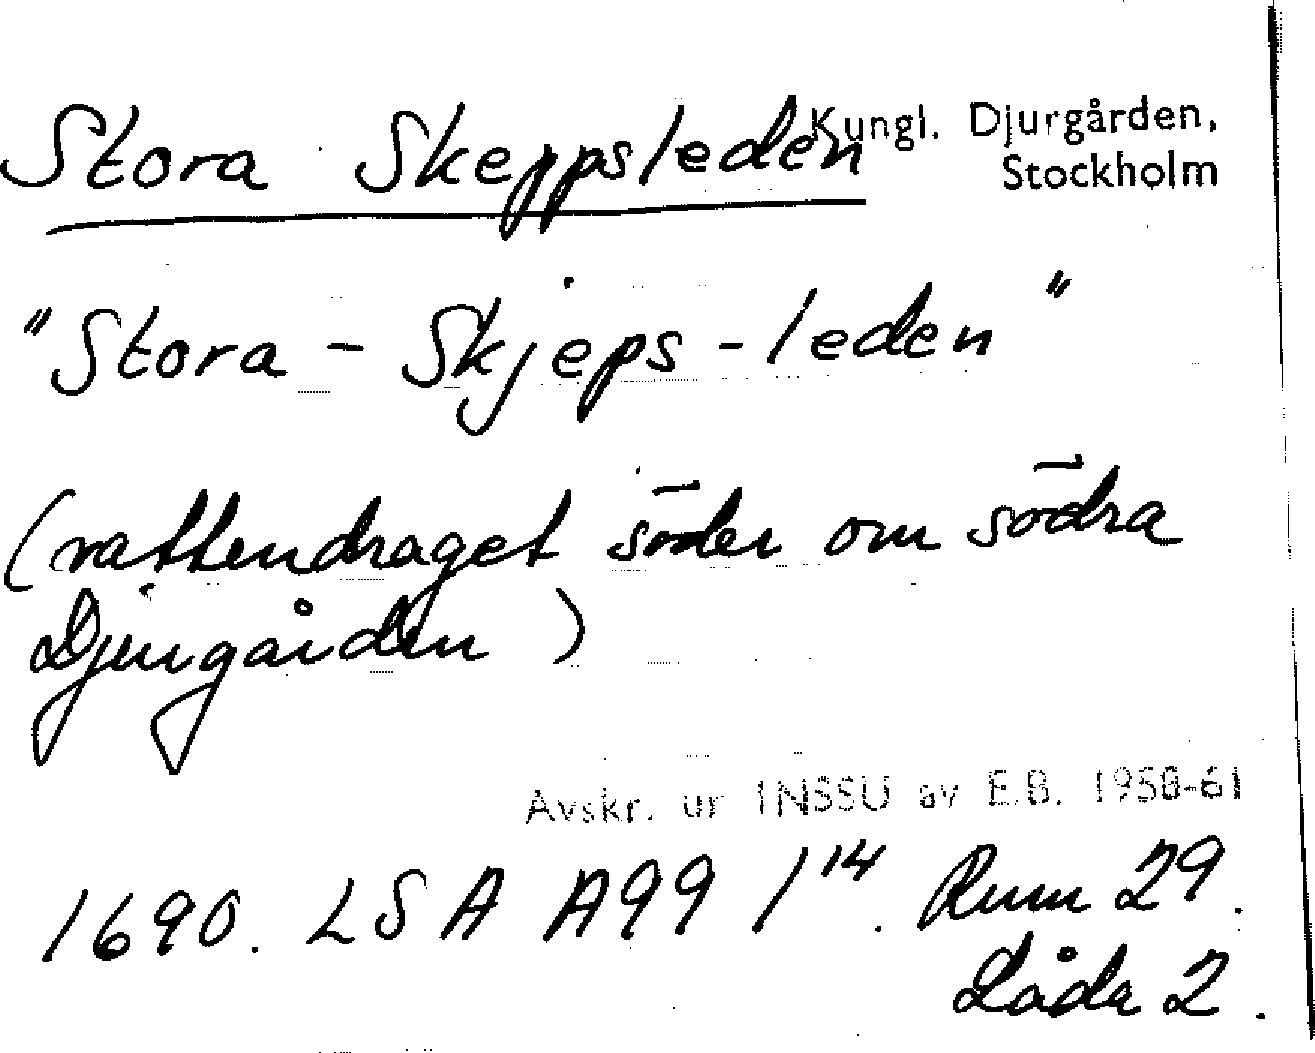 Stora Skeppsleden
Kungl. Djurgården,
Stockholm
"Stora - Skjeps - leden"
(vattendraget söder om södra
Djurgården)
Avskr. ur INSSU av E.B. 1958-61
1690. LSA A99 1¹⁴. Rum 29.
Låda 2.